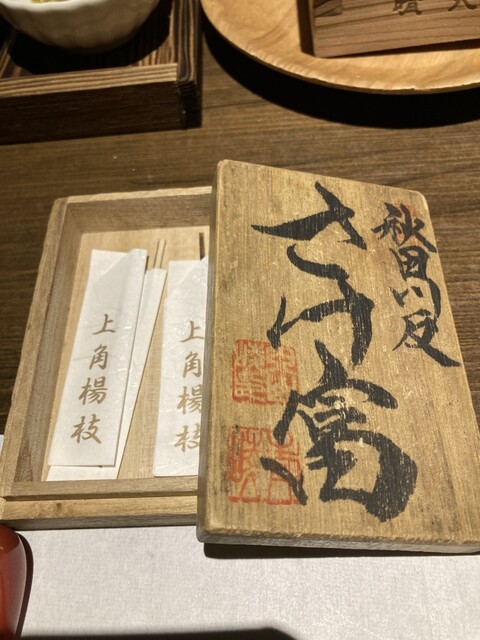 秋田川反
さけ富
上角楊枝
上角楊枝